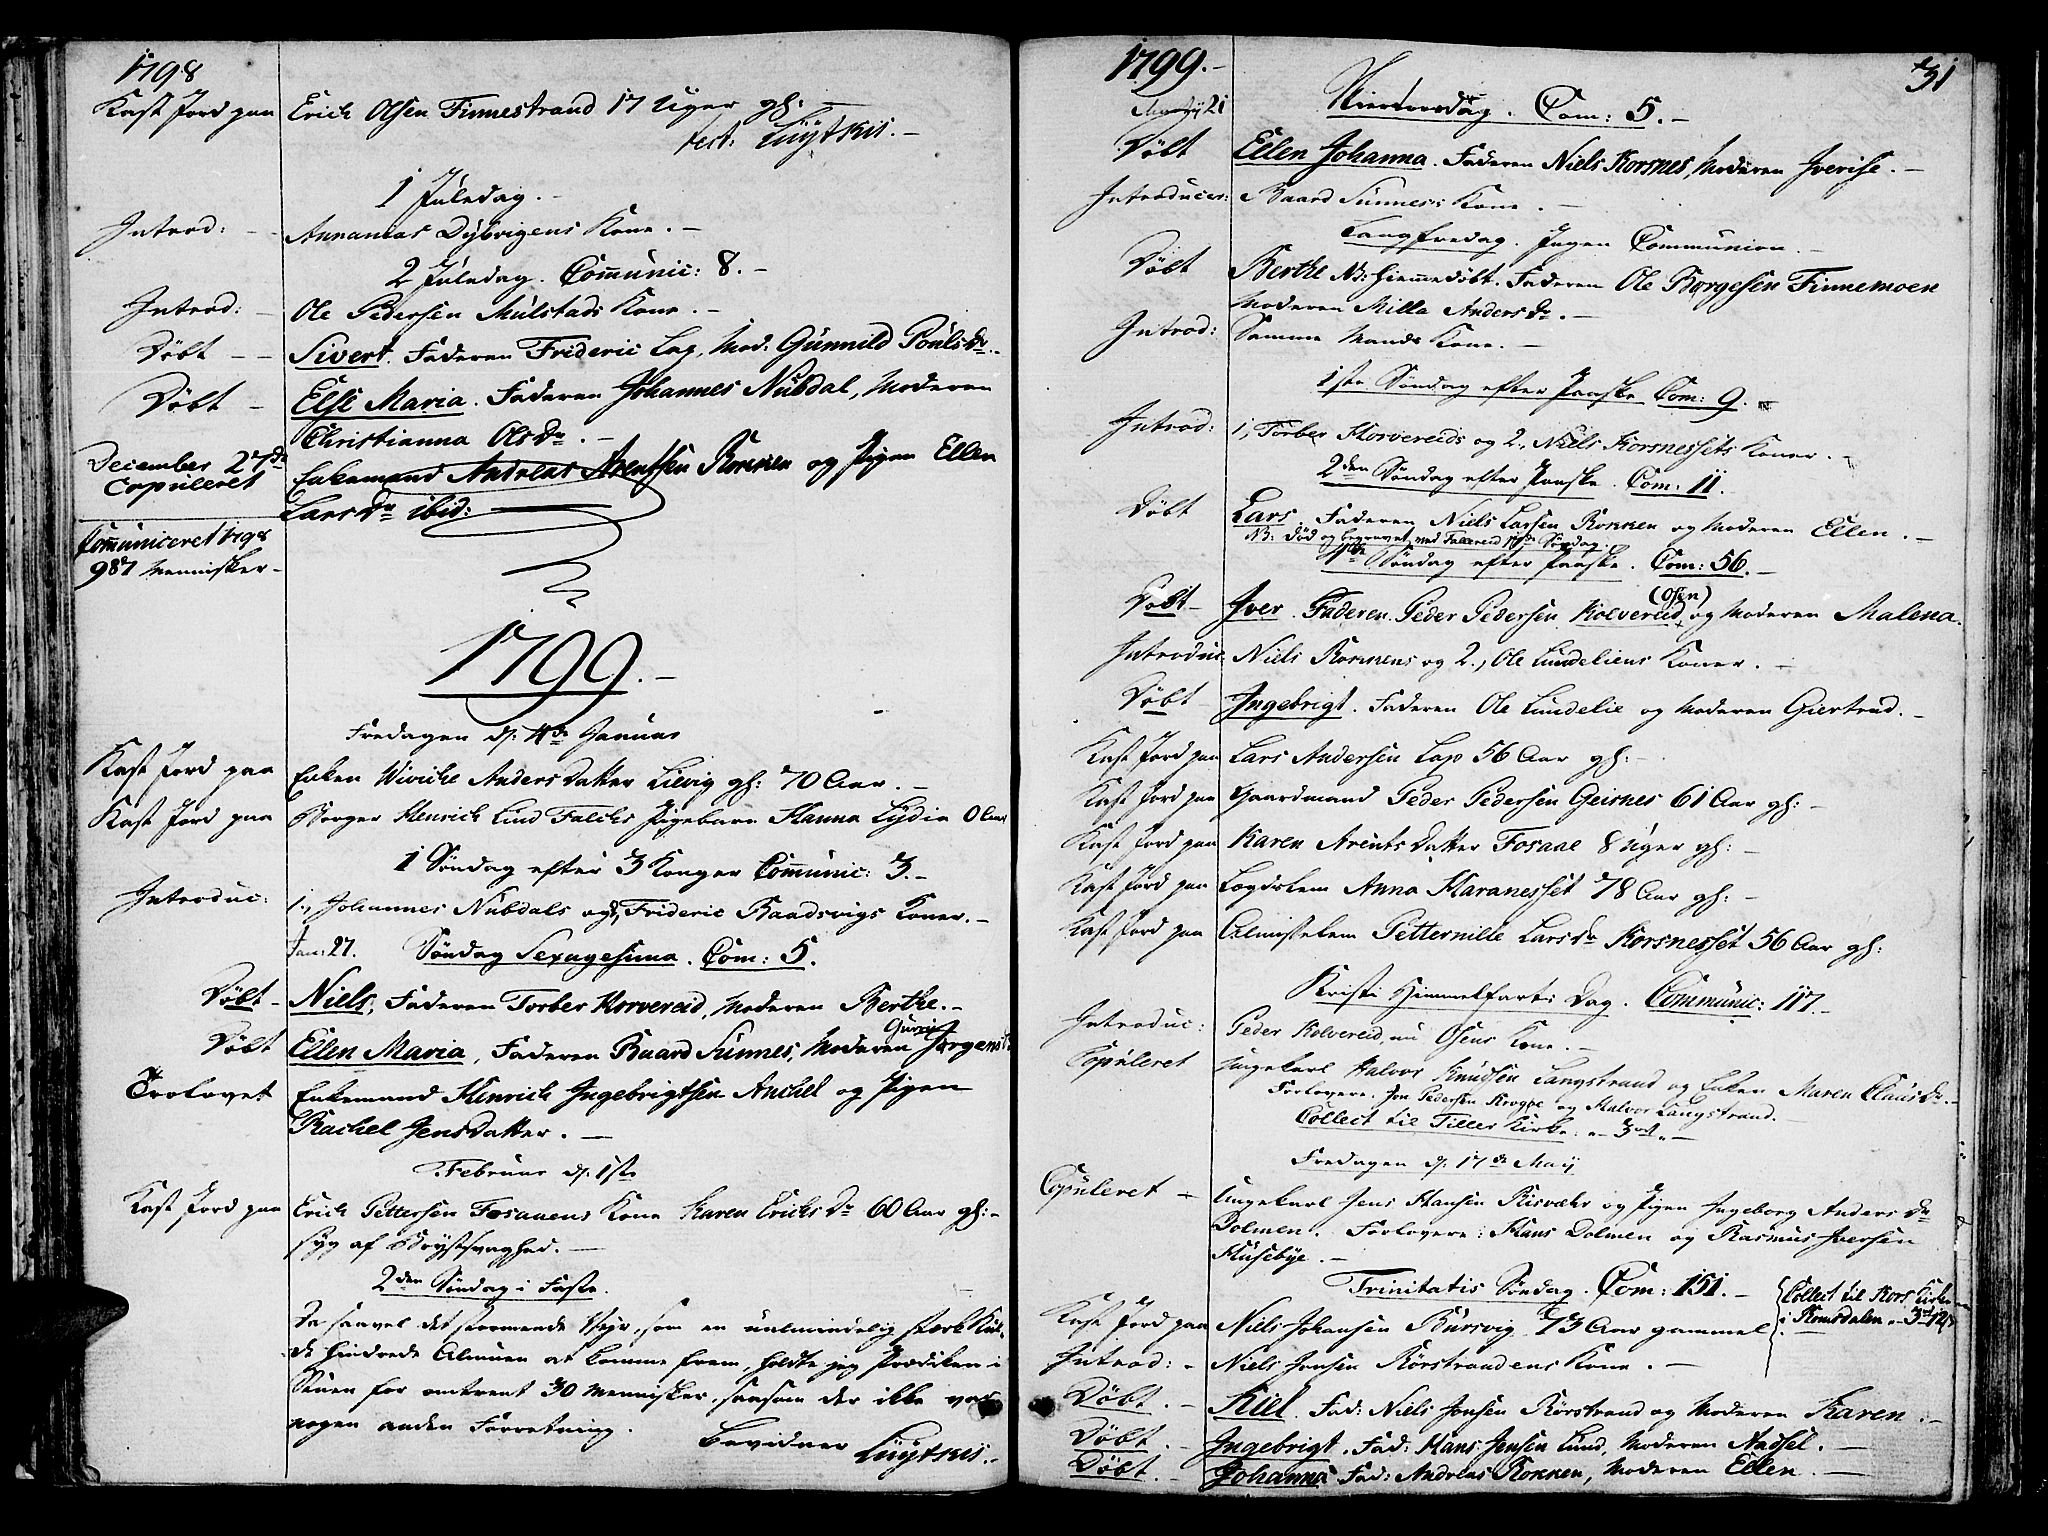 1798
Kast Jord paa Erich Olsen Finnestrand 17 Uger gl:
test: Lüÿtkis.-
1 Juledag.-
Introd: - Annanias Dybvigens Kone.-
2 Juledag. Com̄unic: 8.-
Introd: - Ole Pedersen Mulstads Kone.-
Döbt - - Sivert. Faderen Frideric Lap, Mod: Gunnild Poulsdr.-
Döbt - Else Maria. Faderen Johannes Nubdal, Moderen
Christianna Olsdr.-
December 27de
Copuleret Enkemand Andreas Arentsen Ronnen og Pigen Ellen
Larsdr ibid:
Com̄uniceret 1798
987 Mennisker-
1799.-
Fredagen d: 4de Januar
Kast Jord paa Enken Wiviche Anders Datter Lilvig gl: 70 Aar.-
Kast Jord paa Borger Henrich Lind Falchs Pigebarn Hanna Lydia 0 Aar
1 Söndag efter 3 Konger Com̄unic: 3.-
Introduc: 1., Johannes Nubdals og 2, Frideric Raadsvigs Koner.-
Jan: 27. Söndag Sexagesima. Com: 5.
Döbt - Niels, Faderen Torber Horvereid, Moderen Berthe.-
Döbt Ellen Maria, Faderen Baard Sunnes, Moderen Gurrie Jörgensd
Trolovet Enkemand Henrich Ingebrigtsen Anchel og Pigen
Rachel Jens Datter.-
Februar d: 1ste
Kast Jord paa Erich Pettersen Fosaaens Kone Karen Erichs Dr 60 Aar gl:-
syg af Brystsvaghed.-
2den Söndag i Faste.
Da saavel det stormende Vejr, som en ualmindelig stærk Kul-
de hindrede Almuen at komme frem, holdte jeg Prædiken i
Stuen for omtrent 30 Mennisker, saasom der ikke var
nogen anden Forretning.
Bevidner Lüÿtkis.-
1799.- 31
Martij 21 Skiertorsdag. Com: 5.-
Döbt Ellen Johanna. Faderen Niels Korsnes, Moderen Iverise.-
Introduces: Baard Sunnes's Kone.-
Langfredag. Ingen Communion.-
Döbt Berthe NB: hjem̄edöbt. Faderen Ole Borgesen Finnemoen
Moderen Milla Andersdr.-
Introd: Samme Mands Kone.-
1ste Söndag efter Paaske Com: 9.
Introd: 1, Torber Horvereids og 2., Niels Korsnessets Koner.-
2den Söndag efter Paaske. Com: 11.
Döbt Lars. Faderen Niels Larsen Ronnen og Moderen Ellen.-
NB: död og begravet ved Follereid Söndag.
4de Söndag efter Paaske. Com: 56.-
Döbt - Iver. Faderen Peder Pedersen Kolvereid (Osen) og Moderen Malena.
Introduc Niels Ronnens og 2., Ole Lundeliens Koner.-
Döbt Ingebrigt. Faderen Ole Lundelie og Moderen Giertrud.-
Kast Jord paa Lars Andersen Lap 56 Aar gl:-
Kast Jord paa Gaardmand Peder Pedersen Geisnes 61 Aar gl:-
Kast Jord paa Karen Arents Datter Fosaae 8 Uger gl:-
Kast Jord paa Lægdslem Anna Haranesset 78 Aar gl:-
Kast Jord paa Almisselem Petternille Larsdr Korsnesset 56 Aar gl:
Kristi Himmelfarts Dag. Communic: 117.-
Introduc: Peder Kolvereid, nu Osens Kone.-
Copuleret Ungekarl Halvor Knudsen Langstrand og Enken Maren Clausdr.-
Forlovere: Jon Pedersen Krogöe og Halvor Langstrand.-
Collect til Tiller Kirke: - 3 ort -
Fredagen d: 17de Maij
Copuleret - Ungekarl Jens Hansen Risvær og Pigen Ingeborg Anders dr
Dolmen. Forlovere: Hans Dolmen og Rasmus Iversen
Husebÿe.-
Trinitatis Söndag. Com: 151.- Collect til Kors Kirke
i Romsdalen - 3 ort 12 s
Kast Jord paa Niels Johansen Bursvig 73 Aar gammel.
Introd: - Niels Jonsen Rörstrandens Kone.-
Döbt.- Kiel. Fad: Niels Jonsen Rörstrand og Moderen Karen.-
Döbt.- Ingebrigt. Fad: Hans Jensen Lund, Moderen Aadsel.-
Döbt.- Johanna Fad: Andreas Ronnen, Moderen Ellen.-